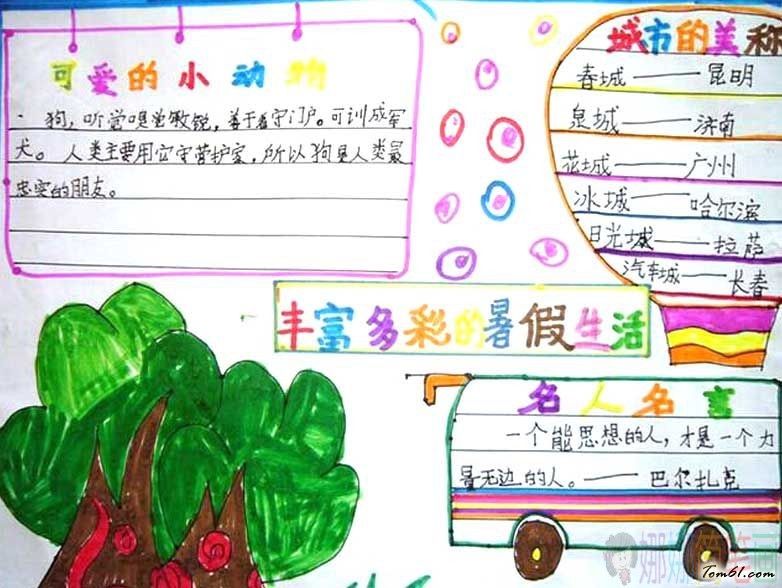 可爱的小动物
狗，听觉嗅觉敏锐，善于看守门户。可训成军
犬。人类主要用它守营护家，所以狗是人类最
忠实的朋友。
城市的美称
春城——昆明
泉城——济南
花城——广州
冰城——哈尔滨
日光城——拉萨
汽车城——长春
丰富多彩的暑假生活
名人名言
一个能思想的人，才是一个力
量无边的人。——巴尔扎克
Tom61.com